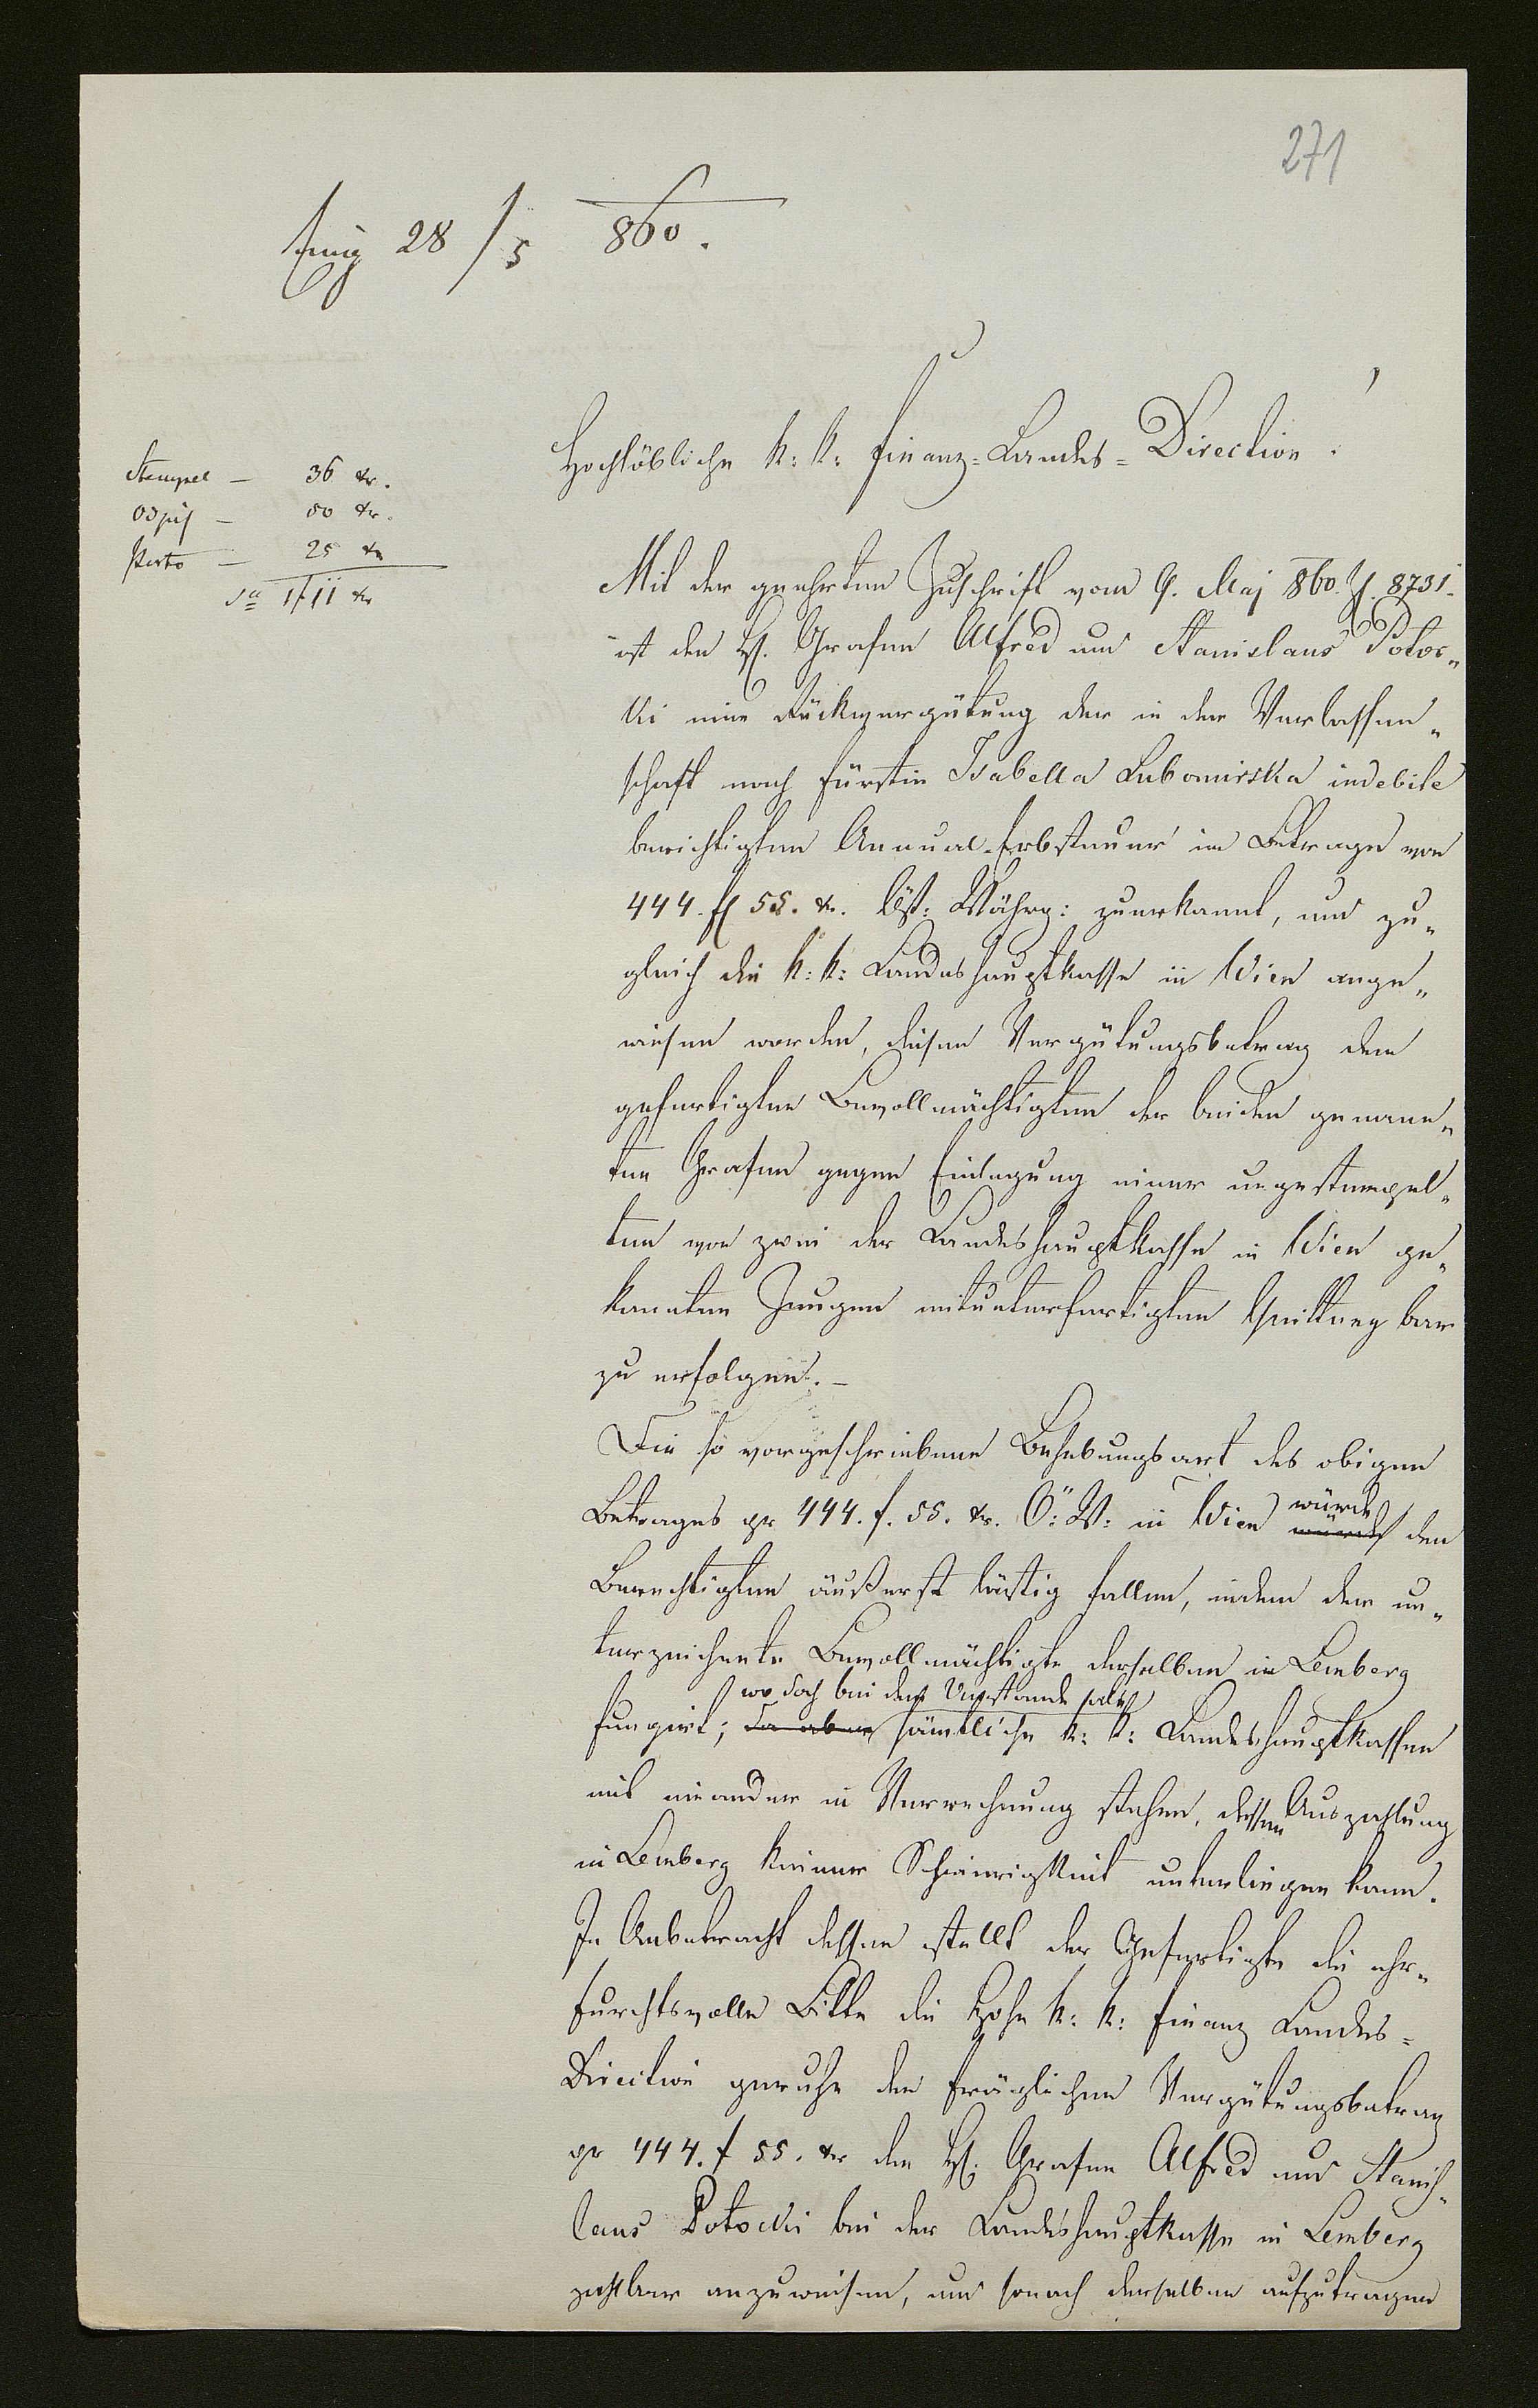 271
28/5 860.
Hochlöbliche k: k: Finanz-Landes-Direction!
Stempel – 36 kr.
50 kr.
Porto – 25 kr
Sa 1 f 11 kr
Mit der geehrten Zuschrift vom 9. Maj 860. Z. 8731.
ist den H. Grafen Alfred und Stanislaus Potoc„
ki eine Rückvergütung der in der Verlassen„
schaft nach Fürstin Isabella Lubomirska indebite
berichtigten Annual-Erbsteuer im Betrage von
444. fl 55. kr. Öst: Währg: zuerkannt, und zu„
gleich die k: k: Landeshauptkasse in Wien ange„
wiesen worden, diesen Vergütungsbetrag dem
gefertigten Bevollmächtigten der beiden genann„
ten Grafen gegen Einlegung einer ungestempel„
ten von zwei der Landeshauptkasse in Wien ge„
kannten Zeugen mitunterfertigten Quittung bar
zu erfolgen. –
Die so vorgeschriebene Behebungsart des obigen
Betrages pr 444. f. 55. kr. Ö: W: in Wien würde den
Berechtigten äußerst lästig fallen, indem der un„
terzeichnete Bevollmächtigte derselben in Lemberg
wo doch bei dem Umstande
fungirt; da aber sämtliche k: k: Landeshauptkassen
mit einander in Verrechnung stehen, dessen Auszahlung
in Lemberg keiner Schwierigkeit unterliegen kann.
In Anbetracht dessen stellt der Gefertigte die ehr„
furchtsvolle Bitte die Hohe k: k: Finanz Landes-
Direction geruhe den fräglichen Vergütungsbetrag
pr 444. f 55. kr den H. Grafen Alfred und Stanis„
laus Potocki bei der Landeshauptkasse in Lemberg
zahlbar anzuweisen, und sonach derselben aufzutragen